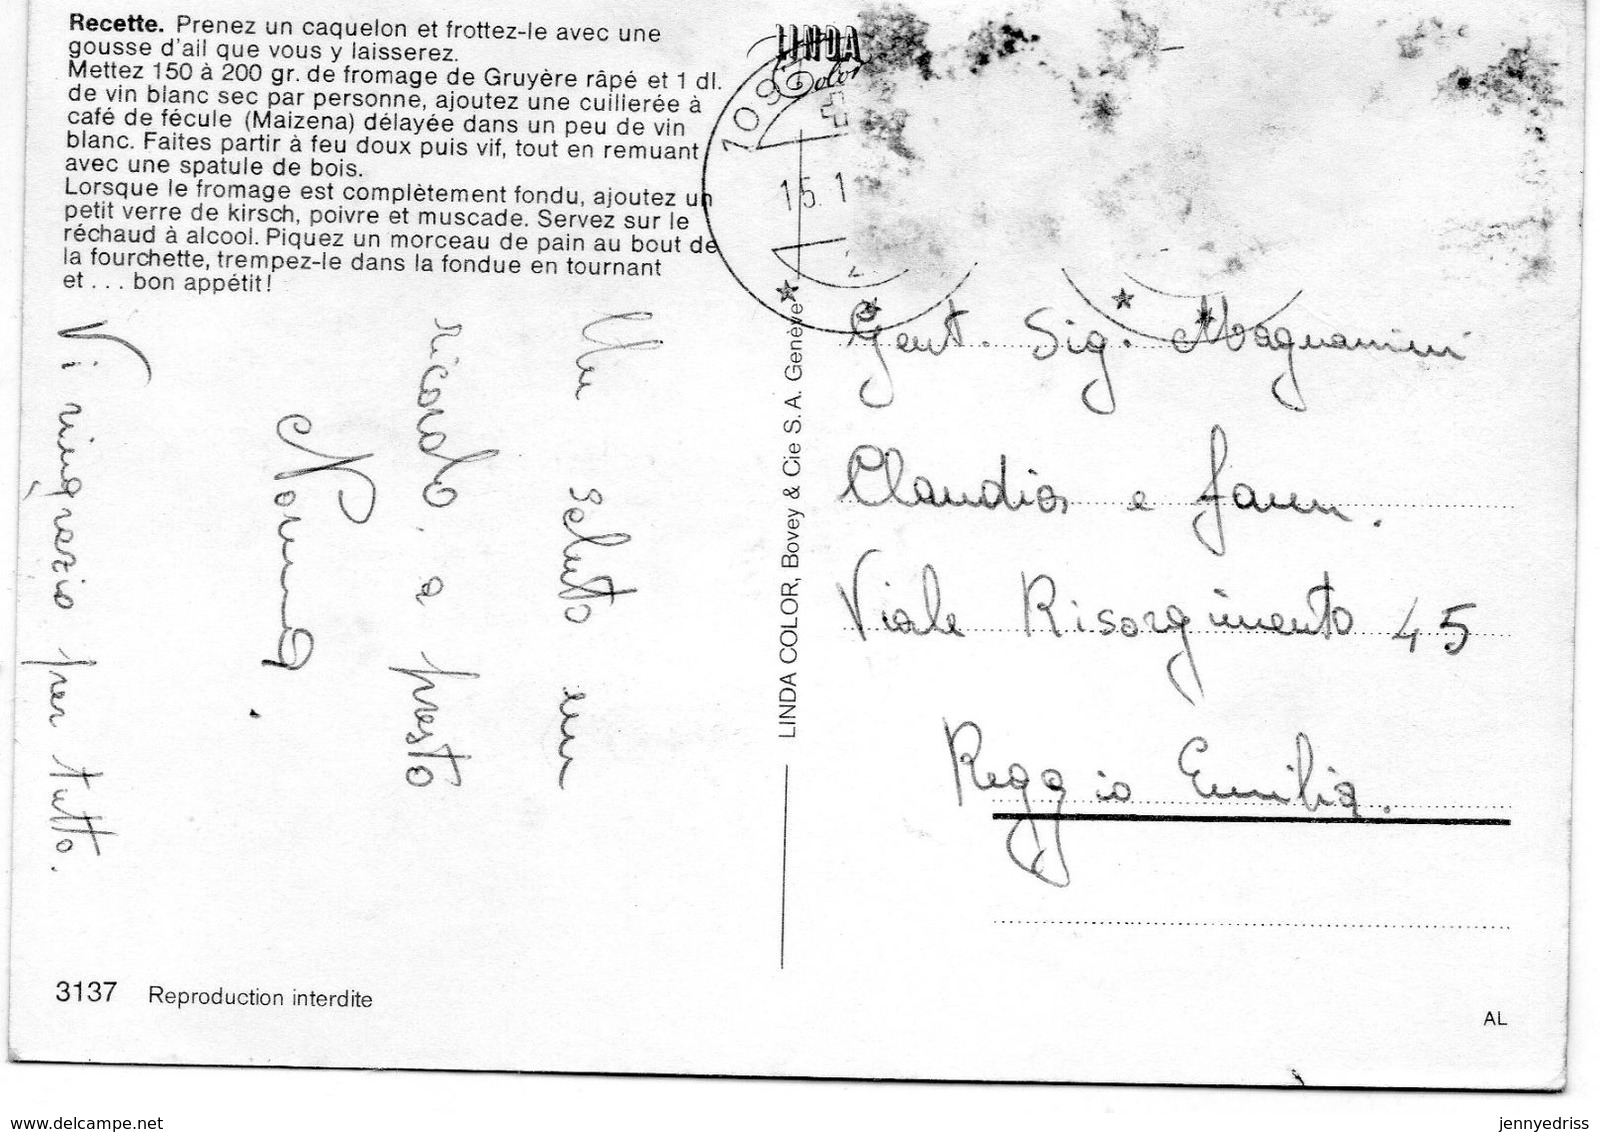 Recette. Prenez un caquelon et frottez-le avec une
gousse d'ail que vous y laisserez.
Mettez 150 à 200 gr. de fromage de Gruyère râpé et 1 dl.
de vin blanc sec par personne, ajoutez une cuillerée à
café de fécule (Maizena) délayée dans un peu de vin
blanc. Faites partir à feu doux puis vif, tout en remuant
avec une spatule de bois.
Lorsque le fromage est complètement fondu, ajoutez un
petit verre de kirsch, poivre et muscade. Servez sur le
réchaud à alcool. Piquez un morceau de pain au bout de
la fourchette, trempez-le dans la fondue en tournant
et . . . bon appétit!
Un saluto un
ricordo. a presto
Norma.
Vi ringrazio per tutto.
LINDA
Color
109
15. 1
LINDA COLOR, Bovey & Cie S.A. Genève
Gent. Sig. Magnanini
Claudia e fam.
Viale Risorgimento 45
Reggio Emilia.
3137 Reproduction interdite
AL
www.delcampe.net
jennyedriss